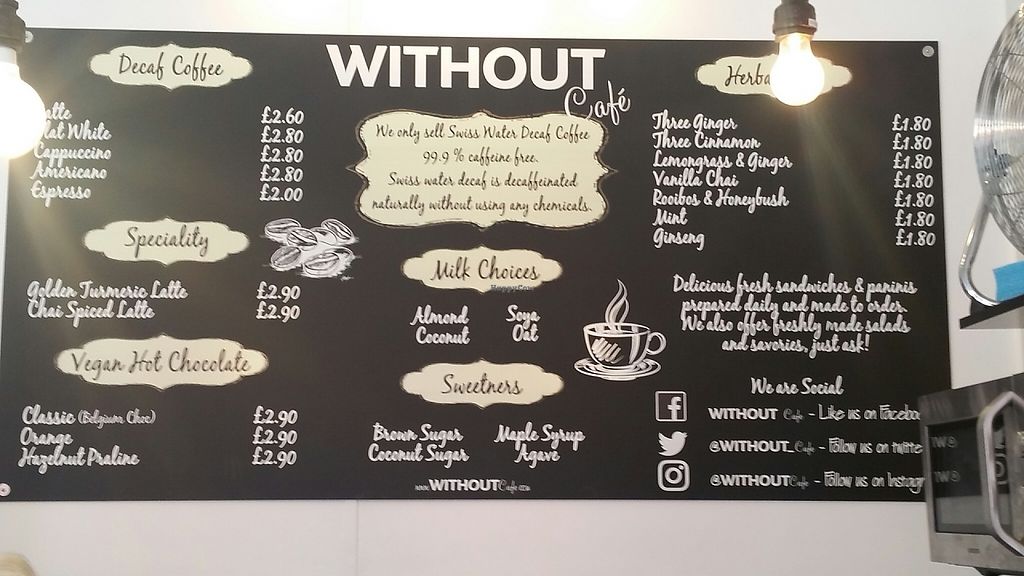 WITHOUT
Café
Decaf Coffee
Latte £2.60
Flat White £2.80
Cappuccino £2.80
Americano £2.80
Espresso £2.00
Speciality
Golden Turmeric Latte £2.90
Chai Spiced Latte £2.90
Vegan Hot Chocolate
Classic (Belgium Choc) £2.90
Orange £2.90
Hazelnut Praline £2.90
We only sell Swiss Water Decaf Coffee
99.9 % caffeine free.
Swiss water decaf is decaffeinated
naturally without using any chemicals.
Milk Choices
HappyCow
Almond Soya
Coconut Oat
Sweetners
Brown Sugar Maple Syrup
Coconut Sugar Agave
www.WITHOUTCafe.com
Herba
Three Ginger £1.80
Three Cinnamon £1.80
Lemongrass & Ginger £1.80
Vanilla Chai £1.80
Rooibos & Honeybush £1.80
Mint £1.80
Ginseng £1.80
Delicious fresh sandwiches & paninis
prepared daily and made to order.
We also offer freshly made salads
and savories, just ask!
We are Social
WITHOUT Cafe - Like us on Facebo
@WITHOUT_Cafe - Follow us on twitte
@WITHOUTCafe - Follow us on Instagr